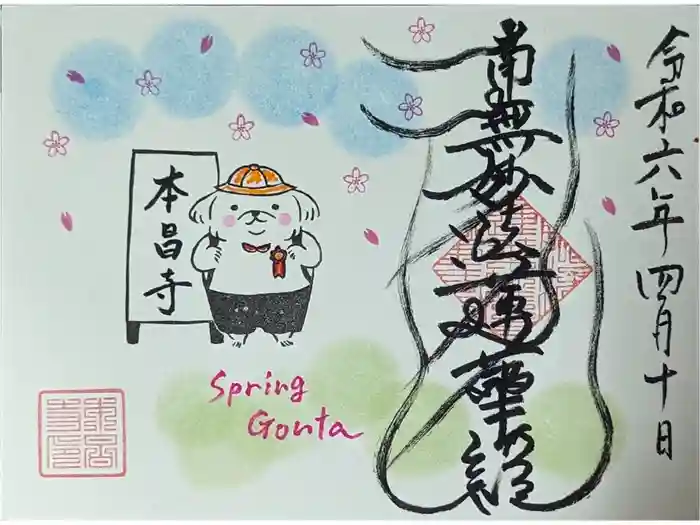 令和六年四月十日
南無妙法蓮華経
本昌寺
Spring
Gonta